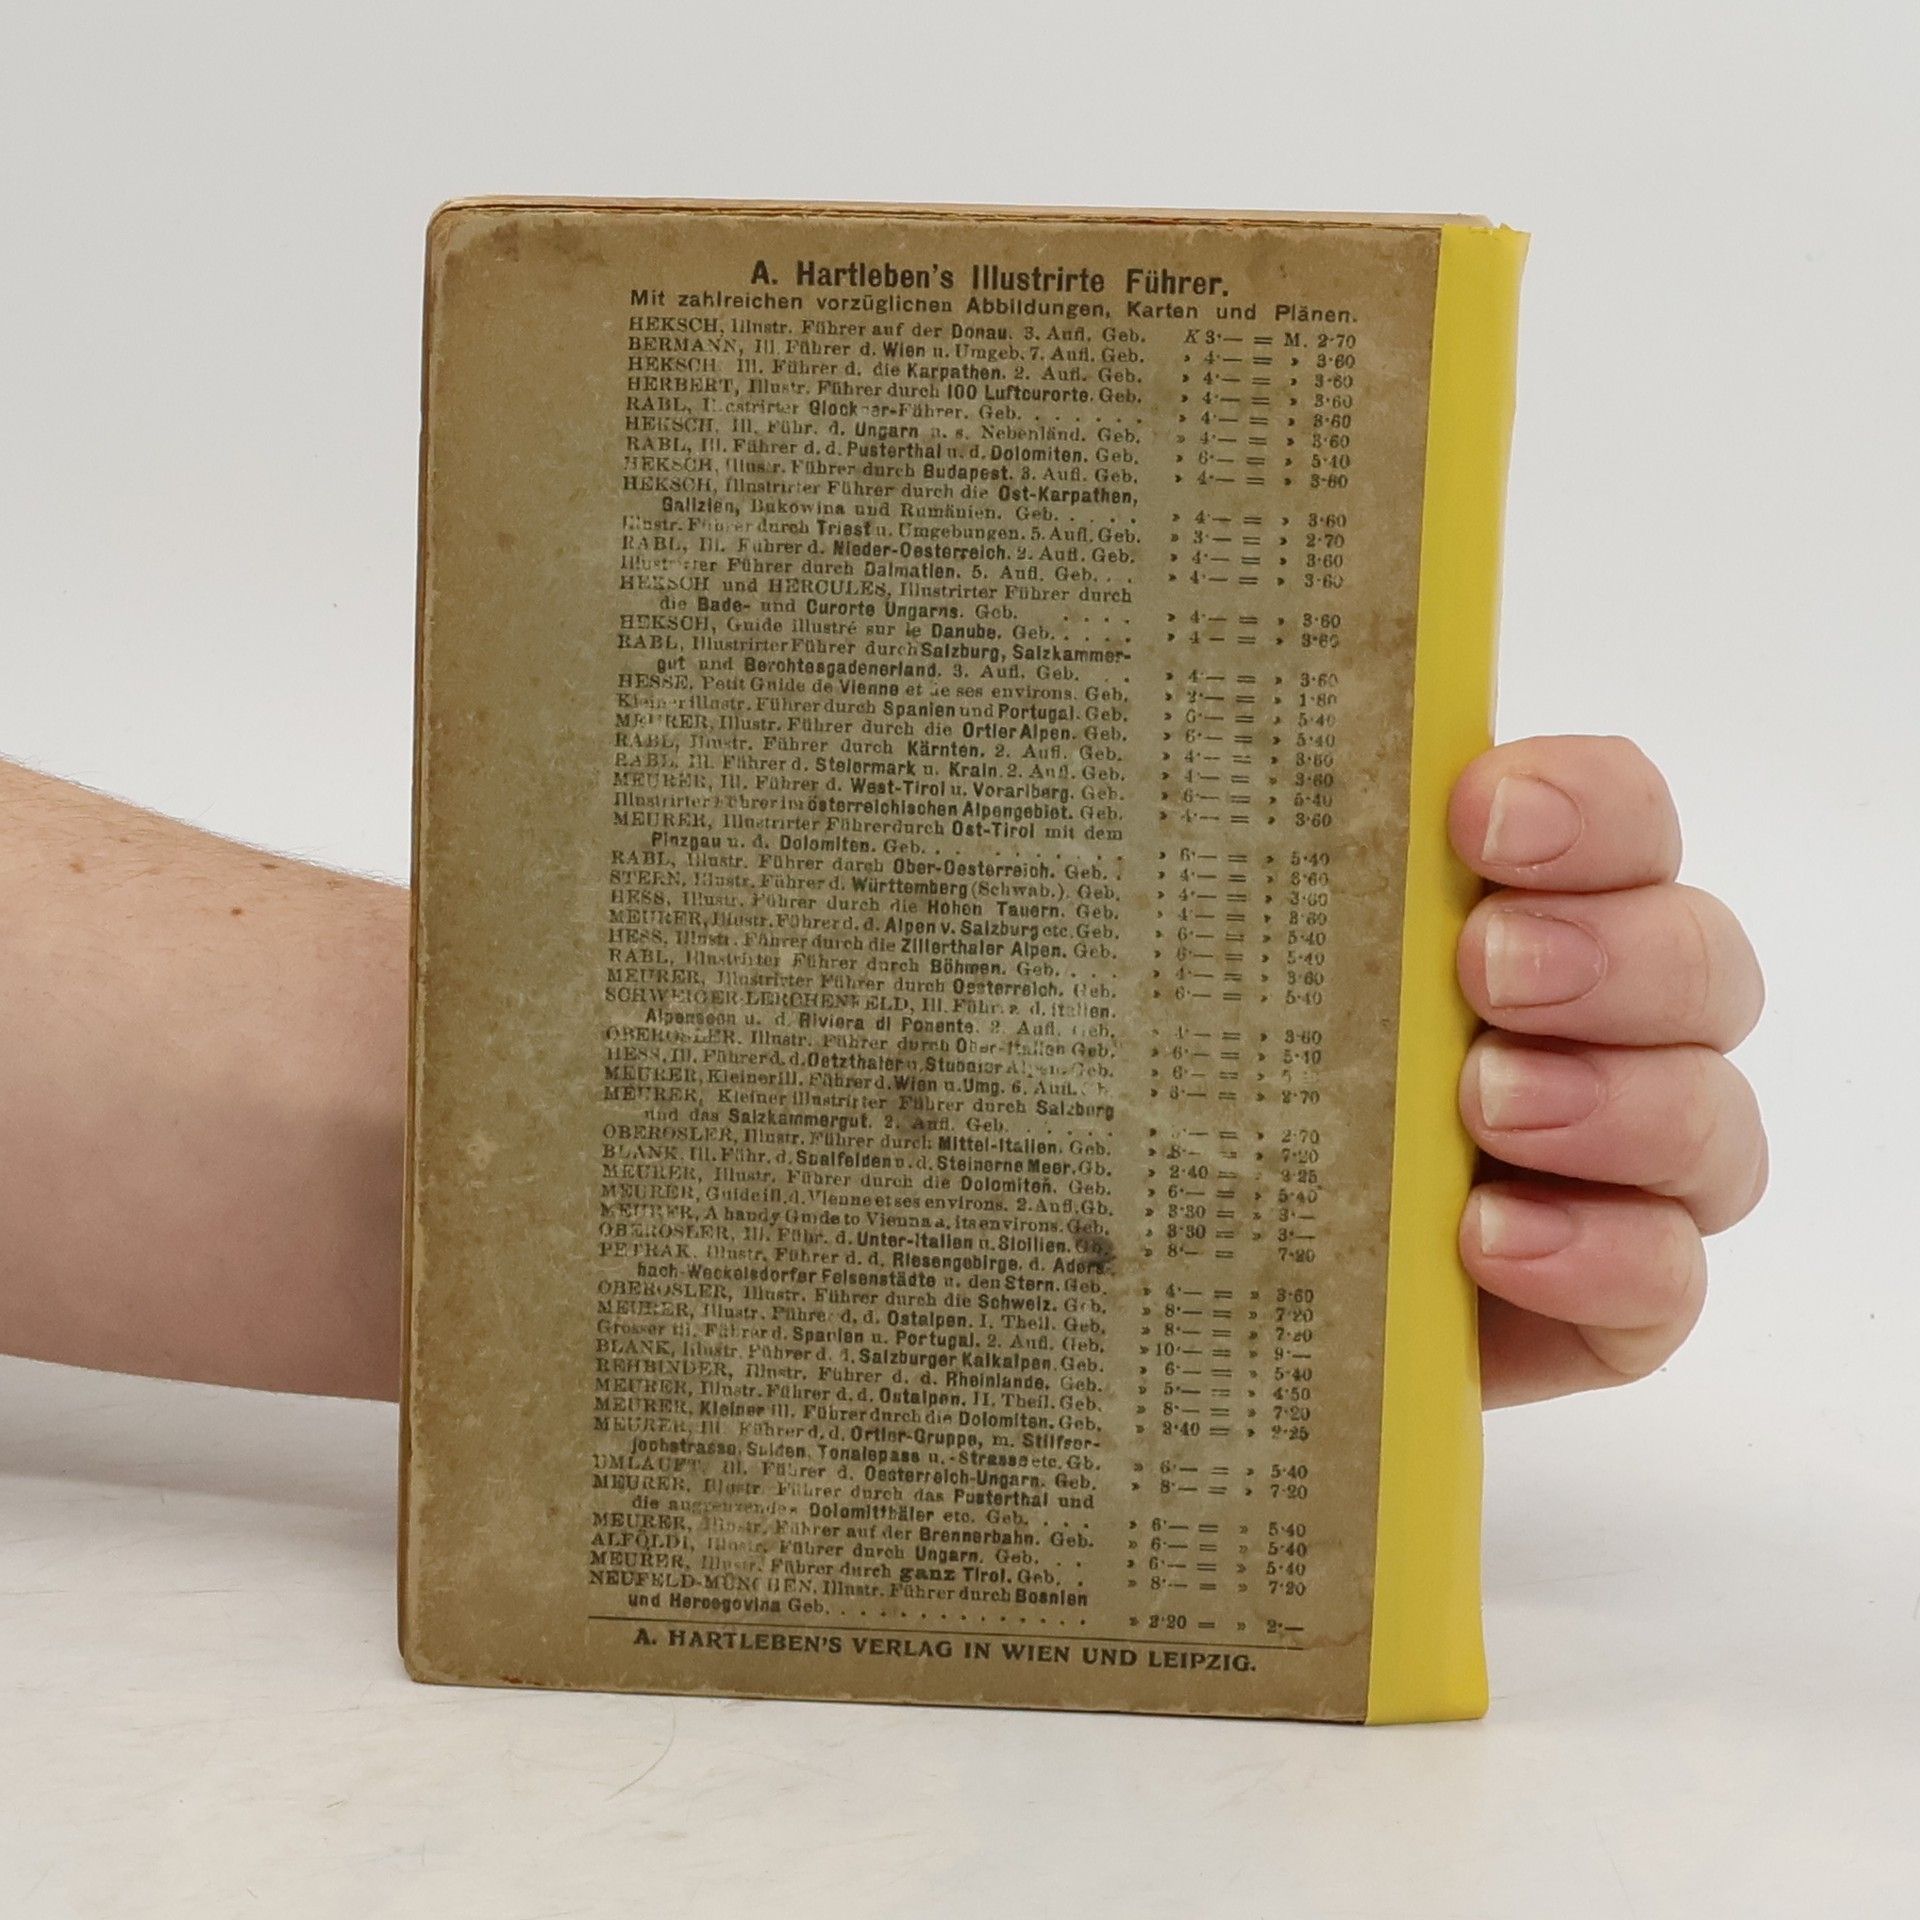 A. Hartleben's Illustrirte Führer.
Mit zahlreichen vorzüglichen Abbildungen, Karten und Plänen.
HEKSCH, Illustr. Führer auf der Donau. 3. Aufl. Geb. K 3·— = M. 2·70
BERMANN, Ill. Führer d. Wien u. Umgeb. 7. Aufl. Geb. » 4·— = » 3·60
HEKSCH, Ill. Führer d. die Karpathen. 2. Aufl. Geb. » 4·— = » 3·60
HERBERT, Illustr. Führer durch 100 Luftcurorte. Geb. » 4·— = » 3·60
RABL, Illustrirter Glockner-Führer. Geb. . . . . . . » 4·— = » 3·60
HEKSCH, Ill. Führ. d. Ungarn u. s. Nebenländ. Geb. » 4·— = » 3·60
RABL, Ill. Führer d. d. Pusterthal u. d. Dolomiten. Geb. » 6·— = » 5·40
HEKSCH, Illustr. Führer durch Budapest. 3. Aufl. Geb. » 4·— = » 3·60
HEKSCH, Illustrirter Führer durch die Ost-Karpathen,
Galizien, Bukowina und Rumänien. Geb. . . . . » 4·— = » 3·60
Illustr. Führer durch Triest u. Umgebungen. 5. Aufl. Geb. » 3·— = » 2·70
RABL, Ill. Führer d. Nieder-Oesterreich. 2. Aufl. Geb. » 4·— = » 3·60
Illustrirter Führer durch Dalmatien. 5. Aufl. Geb. . . » 4·— = » 3·60
HEKSCH und HERCULES, Illustrirter Führer durch
die Bade- und Curorte Ungarns. Geb. . . . . » 4·— = » 3·60
HEKSCH, Guide illustré sur le Danube. Geb. . . . . » 4·— = » 3·60
RABL, Illustrirter Führer durch Salzburg, Salzkammer-
gut und Berchtesgadenerland. 3. Aufl. Geb. . . » 4·— = » 3·60
HESSE, Petit Guide de Vienne et de ses environs. Geb. » 2·— = » 1·80
Kleiner illustr. Führer durch Spanien und Portugal. Geb. » 6·— = » 5·40
MEURER, Illustr. Führer durch die Ortler Alpen. Geb. » 6·— = » 5·40
RABL, Illustr. Führer durch Kärnten. 2. Aufl. Geb. » 4·— = » 3·60
RABL, Ill. Führer d. Steiermark u. Krain. 2. Aufl. Geb. » 4·— = » 3·60
MEURER, Ill. Führer d. West-Tirol u. Vorarlberg. Geb. » 6·— = » 5·40
Illustrirter Führer im österreichischen Alpengebiet. Geb. » 4·— = » 3·60
MEURER, Illustrirter Führer durch Ost-Tirol mit dem
Pinzgau u. d. Dolomiten. Geb. . . . . . . . . . » 6·— = » 5·40
RABL, Illustr. Führer durch Ober-Oesterreich. Geb. . » 4·— = » 3·60
STERN, Illustr. Führer d. Württemberg (Schwab.). Geb. » 4·— = » 3·60
HESS, Illustr. Führer durch die Hohen Tauern. Geb. » 4·— = » 3·60
MEURER, Illustr. Führer d. d. Alpen v. Salzburg etc. Geb. » 6·— = » 5·40
HESS, Illustr. Führer durch die Zillerthaler Alpen. Geb. » 6·— = » 5·40
RABL, Illustrirter Führer durch Böhmen. Geb. . . . » 4·— = » 3·60
MEURER, Illustrirter Führer durch Oesterreich. Geb. » 6·— = » 5·40
SCHWEIGER-LERCHENFELD, Ill. Führ. a. d. italien.
Alpenseen u. d. Riviera di Ponente. 2. Aufl. Geb. » 4·— = » 3·60
OBEROSLER, Illustr. Führer durch Ober-Italien Geb. » 6·— = » 5·40
HESS, Ill. Führer d. d. Oetzthaler u. Stubaier Alpen. Geb. » 6·— = »
MEURER, Kleiner ill. Führer d. Wien u. Umg. 6. Aufl. » 3·— = » 2·70
MEURER, Kleiner illustrirter Führer durch Salzburg
und das Salzkammergut. 2. Aufl. Geb. . . . . . » 3·— = » 2·70
OBEROSLER, Illustr. Führer durch Mittel-Italien. Geb. » 8·— = » 7·20
BLANK, Ill. Führ. d. Saalfelden u. d. Steinerne Meer. Gb. » 2·40 = » 2·25
MEURER, Illustr. Führer durch die Dolomiten. Geb. » 6·— = » 5·40
MEURER, Guide ill. d. Vienne et ses environs. 2. Aufl. Gb. » 3·30 = » 3·—
MEURER, A handy Guide to Vienna a. its environs. Geb. » 3·30 = » 3·—
OBEROSLER, Ill. Führ. d. Unter-Italien u. Sicilien. Gb. » 8·— = 7·20
PETRAK, Illustr. Führer d. d. Riesengebirge, d. Aders-
bach-Weckelsdorfer Felsenstädte u. den Stern. Geb. » 4·— = » 3·60
OBEROSLER, Illustr. Führer durch die Schweiz. Geb. » 8·— = » 7·20
MEURER, Illustr. Führer d. d. Ostalpen. I. Theil. Geb. » 8·— = » 7·20
Grosser ill. Führer d. Spanien u. Portugal. 2. Aufl. Geb. » 10·— = » 9·—
BLANK, Illustr. Führer d. d. Salzburger Kalkalpen. Geb. » 6·— = » 5·40
REHBINDER, Illustr. Führer d. d. Rheinlande. Geb. » 5·— = » 4·50
MEURER, Illustr. Führer d. d. Ostalpen. II. Theil. Geb. » 8·— = » 7·20
MEURER, Kleiner ill. Führer durch die Dolomiten. Geb. » 2·40 = » 2·25
MEURER, Ill. Führer d. d. Ortler-Gruppe, m. Stilfser-
jochstrasse, Sulden, Tonalepass u. -Strasse etc. Gb. » 6·— = » 5·40
UMLAUFT, Ill. Führer d. Oesterreich-Ungarn. Geb. » 8·— = » 7·20
MEURER, Illustr. Führer durch das Pusterthal und
die angrenzenden Dolomitthäler etc. Geb. . . . » 6·— = » 5·40
MEURER, Illustr. Führer auf der Brennerbahn. Geb. » 6·— = » 5·40
ALFÖLDI, Illustr. Führer durch Ungarn. Geb. . . » 6·— = » 5·40
MEURER, Illustr. Führer durch ganz Tirol. Geb. . » 8·— = » 7·20
NEUFELD-MÜNCHEN, Illustr. Führer durch Bosnien
und Hercegovina Geb. . . . . . . . . . . . . . » 2·20 = » 2·—
A. HARTLEBEN'S VERLAG IN WIEN UND LEIPZIG.